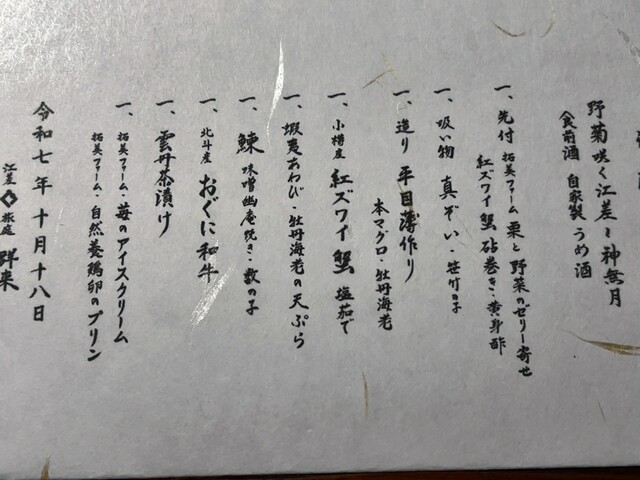 野菊咲く江差と神無月
〈食前酒 自家製 うめ酒
一、先付 拓美ファーム 栗と野菜のゼリー寄せ
紅ズワイ蟹砧巻き・黄身酢
一、吸い物 真ぞい・笹竹の子
一、造り 平目薄作り
本マグロ・牡丹海老
一、小樽産 紅ズワイ蟹 塩茹で
一、蝦夷あわび・牡丹海老の天ぷら
一、鰊 味噌幽庵焼き・数の子
一、北斗産 おぐに和牛
一、雲丹茶漬け
一、拓美ファーム・苺のアイスクリーム
拓美ファーム・自然養鶏卵のプリン
令和七年十月十八日
江差 旅庭 群来